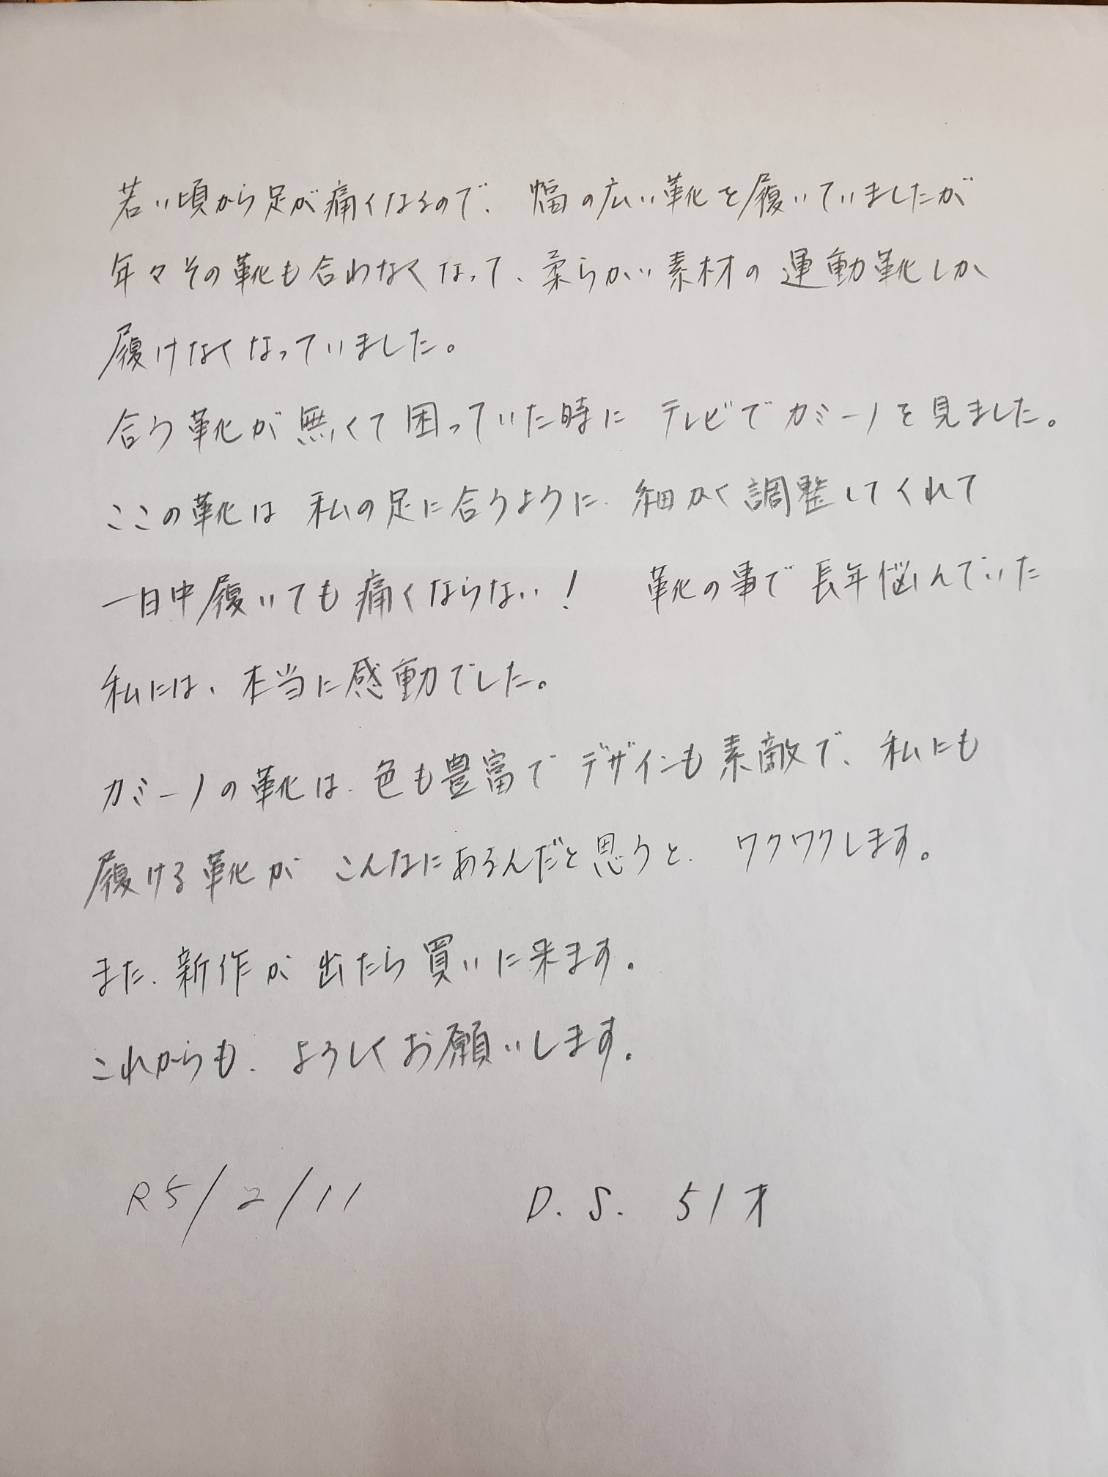 若い頃から足が痛くなるので、幅の広い靴を履いていましたが
年々その靴も合わなくなって、柔らかい素材の運動靴しか
履けなくなっていました。
合う靴が無くて困っていた時に テレビでカミーノを見ました。
ここの靴は 私の足に合うように、細かく調整してくれて
一日中履いても痛くならない! 靴の事で長年悩んでいた
私には、本当に感動でした。
カミーノの靴は、色も豊富でデザインも素敵で、私にも
履ける靴が こんなにあるんだと思うと、ワクワクします。
また、新作が出たら買いに来ます。
これからも、よろしくお願いします。
R5/2/11 D.S. 51才